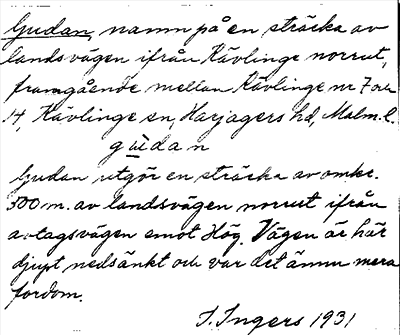 Gudan, namn på en sträcka av
landsvägen ifrån Kävlinge norrut,
framgående mellan Kävlinge nr 7 och
14, Kävlinge sn, Harjagers hd, Malm. l.
gùdan
Gudan utgör en sträcka av omkr.
500 m. av landsvägen norrut ifrån
avtagsvägen emot Hög. Vägen är här
djupt nedsänkt och var det ännu mera
fordom.
I. Ingers 1931